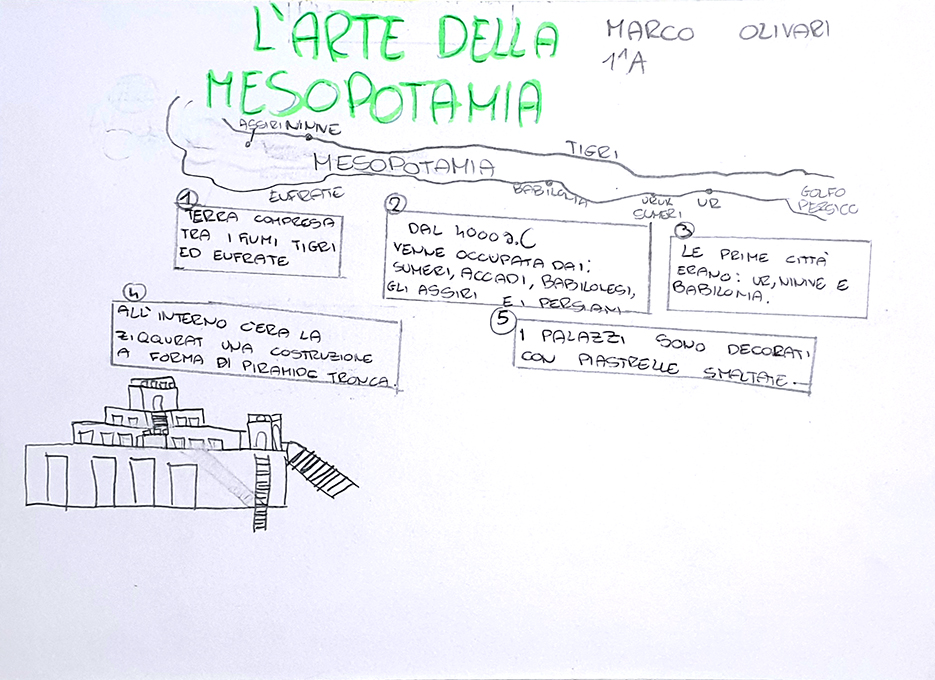 L'ARTE DELLA
MESOPOTAMIA
MARCO OLIVARI
1^A
ASSIRI NINNE
MESOPOTAMIA
TIGRI
EUFRATE
BABILONIA
URUK
SUMERI
UR
GOLFO
PERSICO
1
TERRA COMPRESA
TRA I FIUMI TIGRI
ED EUFRATE
2
DAL 4000 a.C
VENNE OCCUPATA DAI:
SUMERI, ACCADI, BABILOLESI,
GLI ASSIRI E I PERSIANI
3
LE PRIME CITTÀ
ERANO: UR, NINNE E
BABILONIA.
4
ALL'INTERNO C'ERA LA
ZIQQURAT UNA COSTRUZIONE
A FORMA DI PIRAMIDE TRONCA.
5
I PALAZZI SONO DECORATI
CON PIASTRELLE SMALTATE